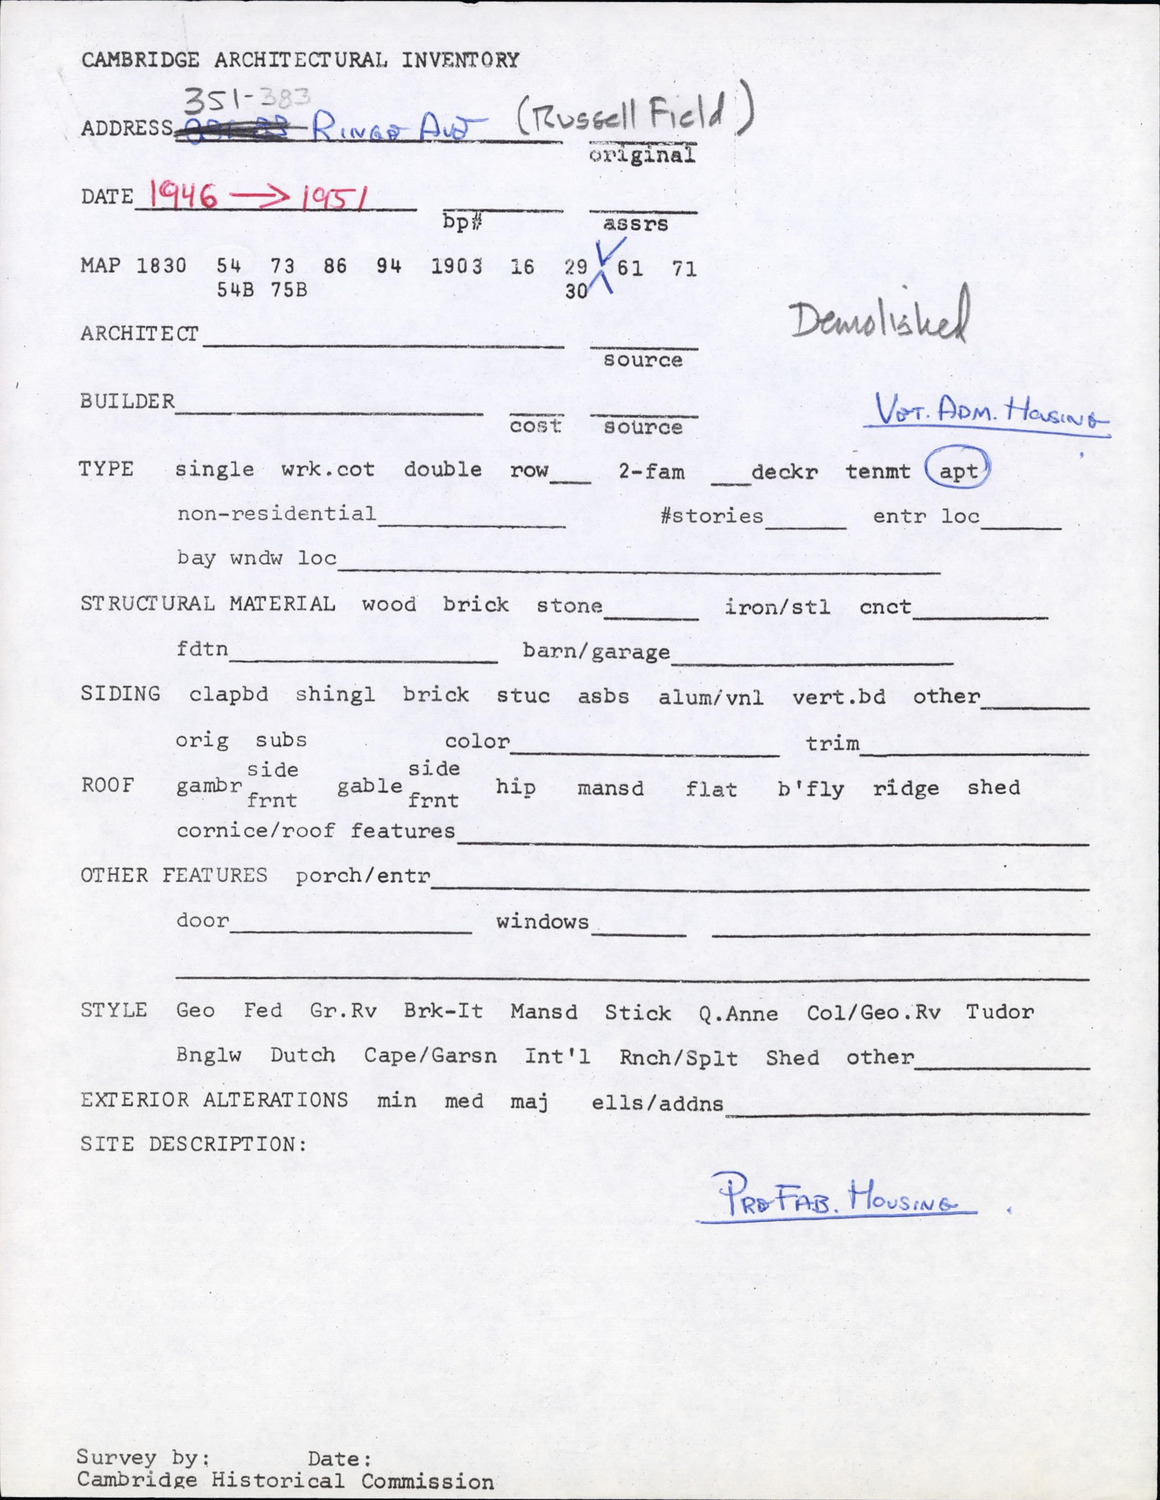 CAMBRIDGE ARCHITECTURAL INVENTORY
351-383
ADDRESS RINGE AVE (Russell Field)
original
DATE 1946 → 1951
bp# assrs
MAP 1830 54 73 86 94 1903 16 29 61 71
54B 75B 30
Demolished
ARCHITECT
source
BUILDER
VET. ADM. HOUSING
cost source
TYPE single wrk.cot double row___ 2-fam ___deckr tenmt apt
non-residential #stories entr loc
bay wndw loc
STRUCTURAL MATERIAL wood brick stone iron/stl cnct
fdtn barn/garage
SIDING clapbd shingl brick stuc asbs alum/vnl vert.bd other
orig subs color trim
side side
ROOF gambr gable hip mansd flat b'fly ridge shed
frnt frnt
cornice/roof features
OTHER FEATURES porch/entr
door windows
STYLE Geo Fed Gr.Rv Brk-It Mansd Stick Q.Anne Col/Geo.Rv Tudor
Bnglw Dutch Cape/Garsn Int'l Rnch/Splt Shed other
EXTERIOR ALTERATIONS min med maj ells/addns
SITE DESCRIPTION:
PREFAB. HOUSING
Survey by: Date:
Cambridge Historical Commission